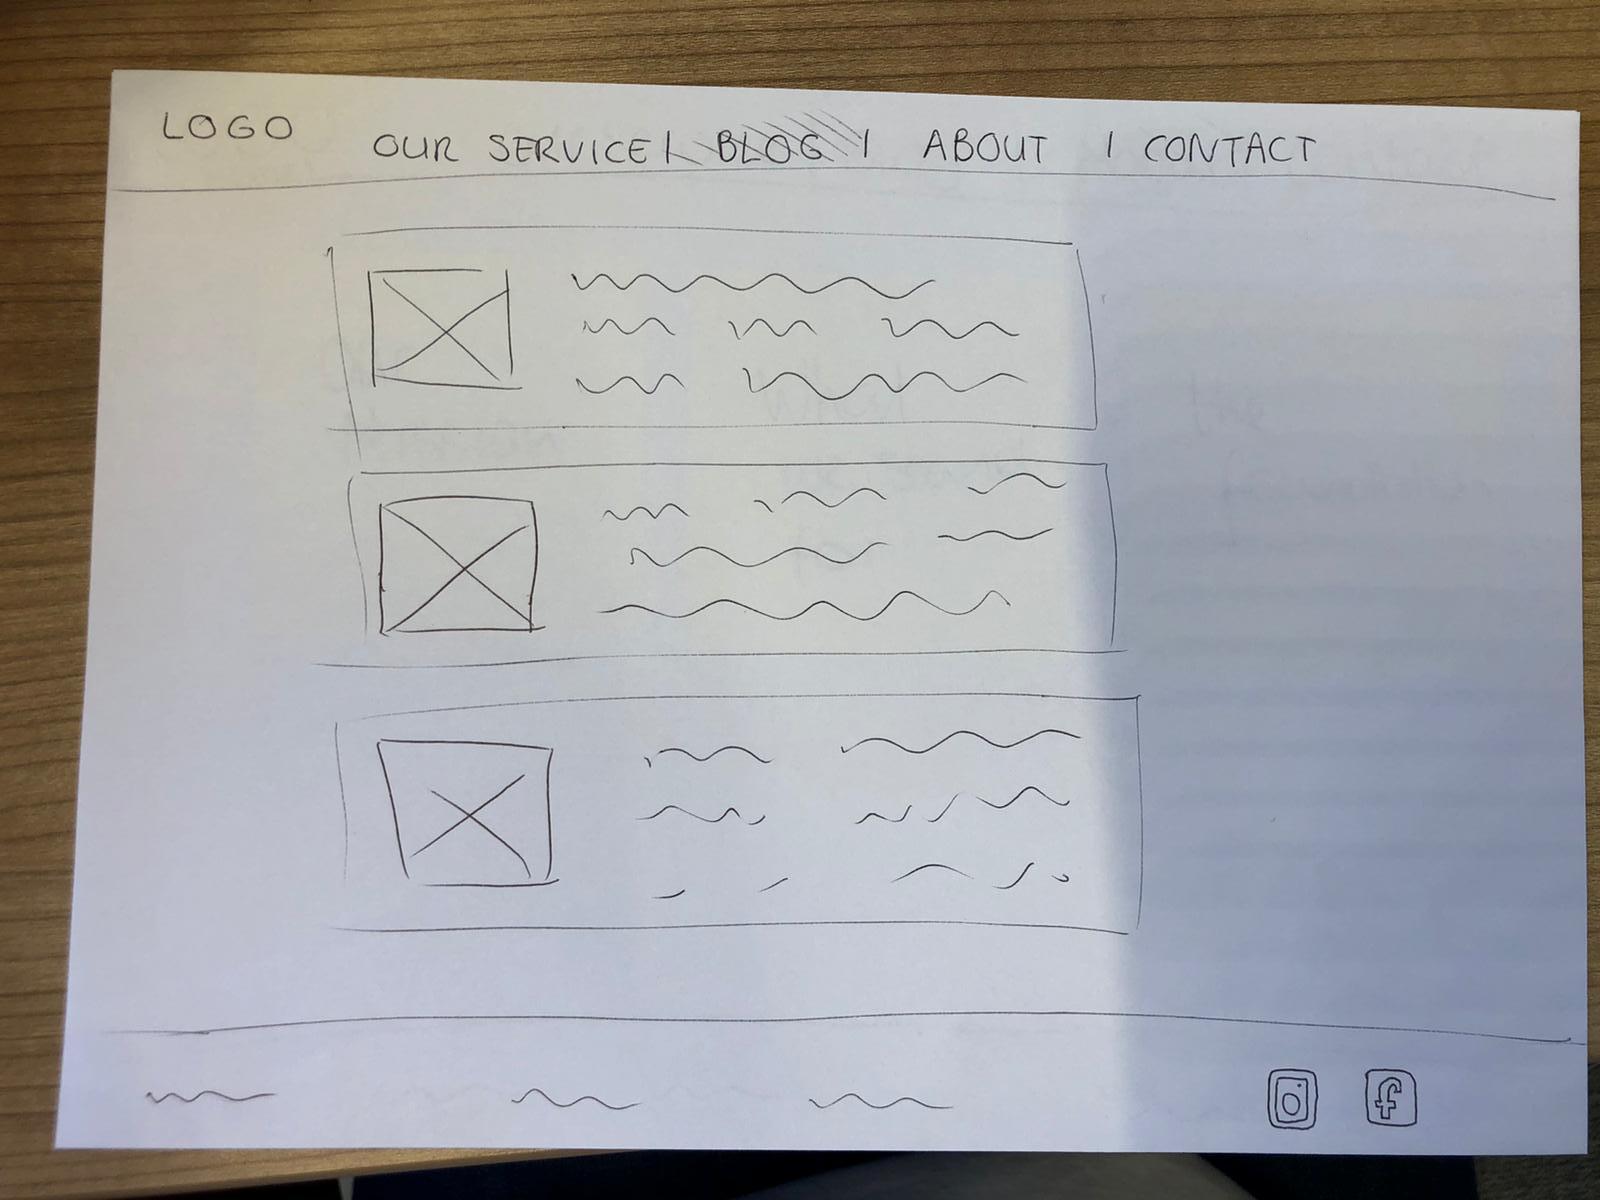 LOGO
OUR SERVICE | BLOG | ABOUT | CONTACT
f